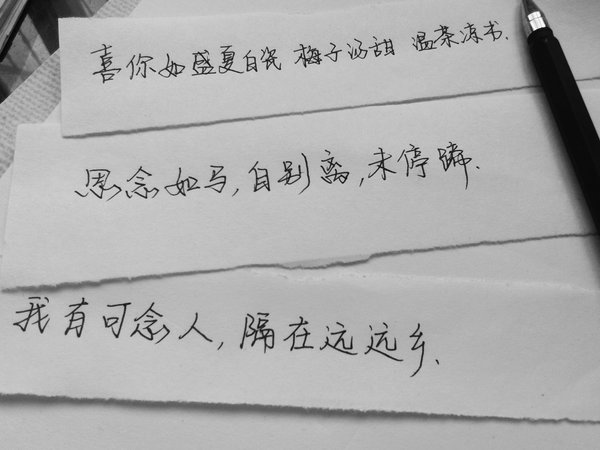 喜你如盛夏白瓷 梅子汤甜 温茶凉书.
思念如马,自别离,未停蹄.
我有可念人,隔在远远乡.